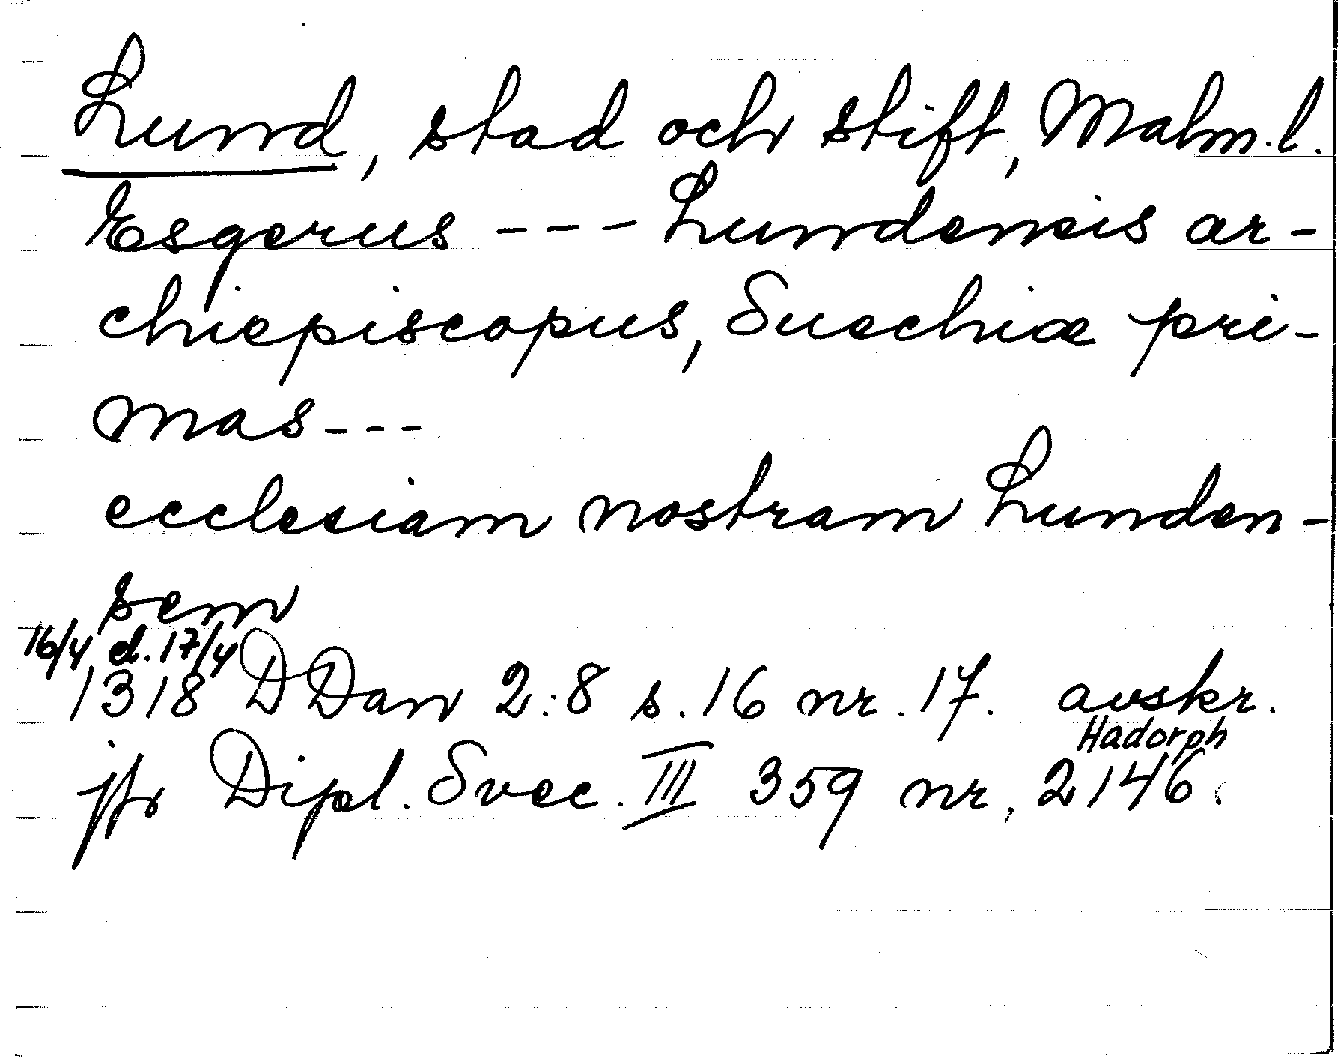 Lund, stad och stift, Malm.l.
Esgerus --- Lundensis ar-
chiepiscopus, Suechiæ pri-
mas---
ecclesiam nostram Lunden-
sem
16/4 el. 17/4
1318 DDan 2:8 s.16 nr.17. avskr.
Hadorph
jfr Dipl. Svec. III 359 nr. 2146.